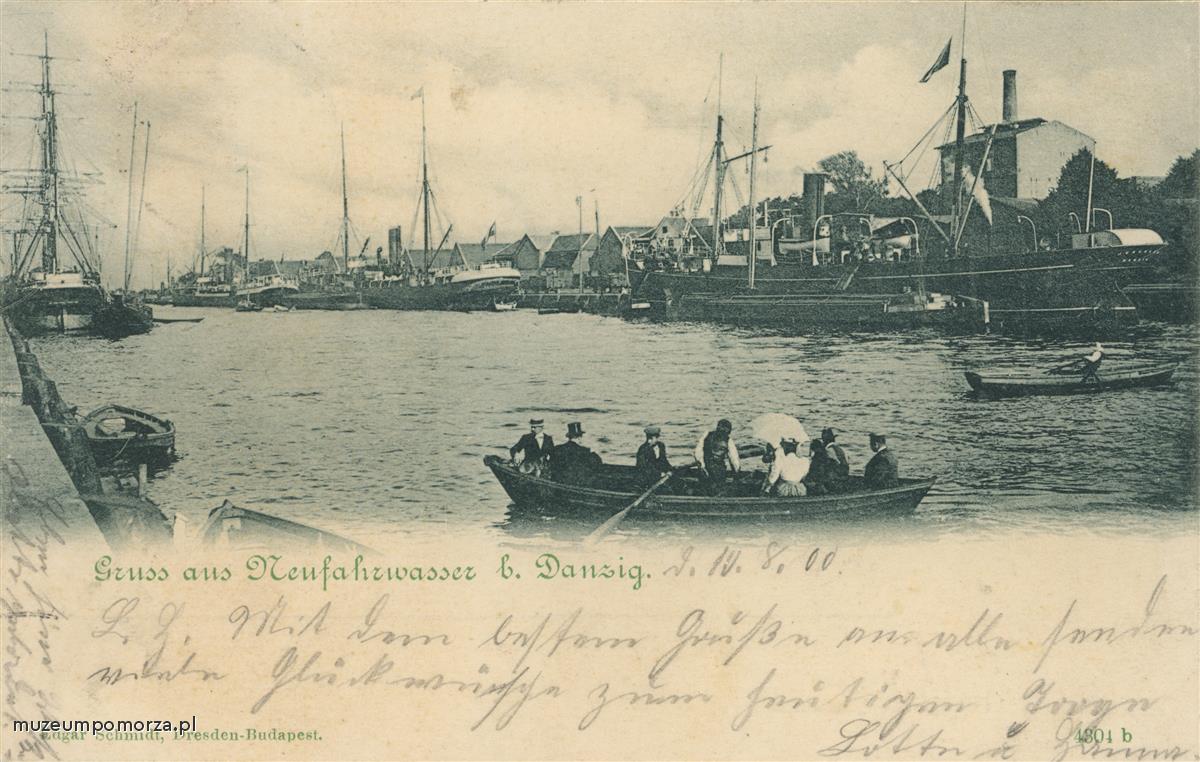 Gruss aus Neufahrwasser b. Danzig. d. 19. 8. 00.
L. H. Mit dem besten Grüße an alle senden
viele Glückwünsche zum heutigen Tage
Lotte u Hanna.
muzeumpomorza.pl
Edgar Schmidt, Dresden-Budapest.
4304 b